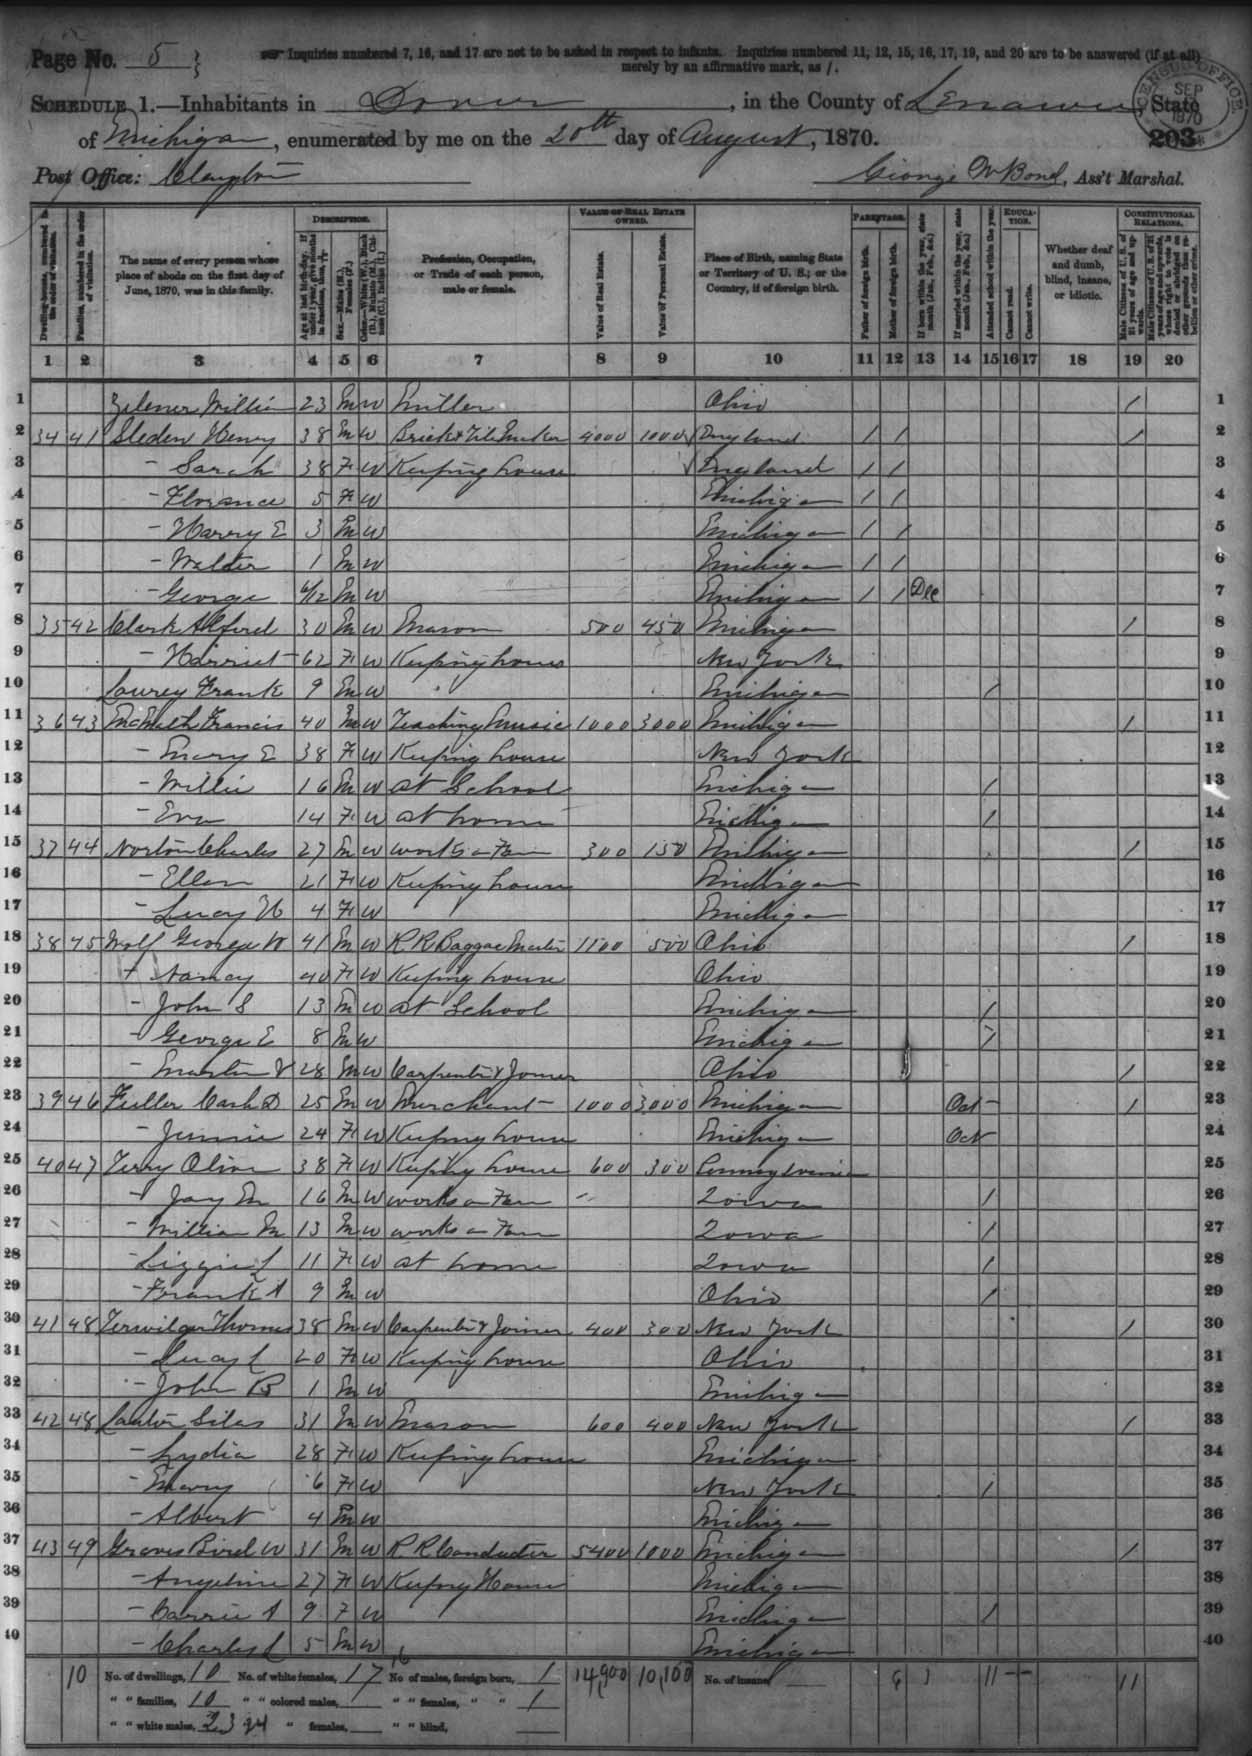 Page No. 5
Inquiries numbered 7, 16, and 17 are not to be asked in respect to infants. Inquiries numbered 11, 12, 15, 16, 17, 19, and 20 are to be answered (if at all)
merely by an affirmative mark, as /.
CENSUS OFFICE SEP 1870
SCHEDULE 1.—Inhabitants in Dover, in the County of Lenawee, State
of Michigan, enumerated by me on the 20th day of August, 1870. 203
Post Office: Clayton George W Bond, Ass't Marshal.
Dwelling-houses, numbered in the order of visitation.
Families, numbered in the order of visitation.
The name of every person whose place of abode on the first day of June, 1870, was in this family.
DESCRIPTION.
Age at last birthday. If under 1 year, give months in fractions, thus, 3/12
Sex.—Males (M.), Females (F.)
Color.—White (W.), Black (B.), Mulatto (M.), Chinese (C.), Indian (I.)
Profession, Occupation, or Trade of each person, male or female.
VALUE OF REAL ESTATE OWNED.
Value of Real Estate.
Value of Personal Estate.
Place of Birth, naming State or Territory of U. S.; or the Country, if of foreign birth.
PARENTAGE.
Father of foreign birth.
Mother of foreign birth.
If born within the year, state month (Jan., Feb., &c.)
If married within the year, state month (Jan., Feb., &c.)
Attended school within the year.
EDUCATION.
Cannot read.
Cannot write.
Whether deaf and dumb, blind, insane, or idiotic.
CONSTITUTIONAL RELATIONS.
Male Citizens of U. S. of 21 years of age and upwards.
Male Citizens of U. S. of 21 years of age and upwards, whose right to vote is denied or abridged on other grounds than rebellion or other crime.
1 2 3 4 5 6 7 8 9 10 11 12 13 14 15 16 17 18 19 20
1 Willie 23 M W Miller Ohio / 1
2 34 41 Sleden Henry 38 M W Brick & Tile Maker 4000 1000 England / / / 2
3 – Sarah 38 F W Keeping house England / / 3
4 – Florance 5 F W Michigan / / 4
5 – Harry E 3 M W Michigan / / 5
6 – Walter 1 M W Michigan / / 6
7 – George 6/12 M W Michigan / / Dec 7
8 35 42 Clark Alferd 30 M W Mason 500 450 Michigan / 8
9 – Harriet 62 F W Keeping house New York 9
10 Lowrey Frank 9 M W Michigan / 10
11 36 43 Francis 40 M W Teaching Music 1000 3000 Michigan / 11
12 – Mary E 38 F W Keeping house New York 12
13 – Willie 16 M W at School Michigan / 13
14 – Eva 14 F W at home Michigan / 14
15 37 44 Norton Charles 27 M W works on Farm 300 150 Michigan / 15
16 – Ellen 21 F W Keeping house Michigan 16
17 – Lucy 4 F W Michigan 17
18 38 45 Wolf George W 41 M W R R Baggae Master 1100 500 Ohio / 18
19 + Nancy 40 F W Keeping house Ohio 19
20 – John S 13 M W at School Michigan / 20
21 – George E 8 M W Michigan / 21
22 – Martin V 28 M W Carpenter & Joiner Ohio / 22
23 39 46 Fuller Cash D 25 M W Merchant 1000 3000 Michigan Oct – / 23
24 – Jennie 24 F W Keeping house Michigan Oct 24
25 40 47 Terry Olive 38 F W Keeping house 600 300 Pennsylvania 25
26 – Jay M 16 M W works on Farm Iowa / 26
27 – William M 13 M W works on Farm Iowa / 27
28 – Lizzie L 11 F W at home Iowa / 28
29 – Frank A 9 M W Ohio / 29
30 41 48 Terwilger Thomas 38 M W Carpenter & Joiner 400 300 New York / 30
31 – Lucy L 20 F W Keeping house Ohio 31
32 – John B 1 M W Michigan 32
33 42 48 Silas 31 M W Mason 600 400 New York / 33
34 – Lydia 28 F W Keeping house Michigan 34
35 – Mary 6 F W New York / 35
36 – Albert 4 M W Michigan 36
37 43 49 Graves Bird W 31 M W R R Conducter 5400 1000 Michigan / 37
38 – Angeline 27 F W Keeping House Michigan 38
39 – Carrie A 9 F W Michigan / 39
40 – Charles L 5 M W Michigan 40
10 No. of dwellings, 10 No. of white females, 17 16 No of males, foreign born, 1 14,900 10,100 No. of insane, 6 1 11 11
" " families, 10 " " colored males, " " females, " " 1
" " white males, 23 24 " females, " " blind,